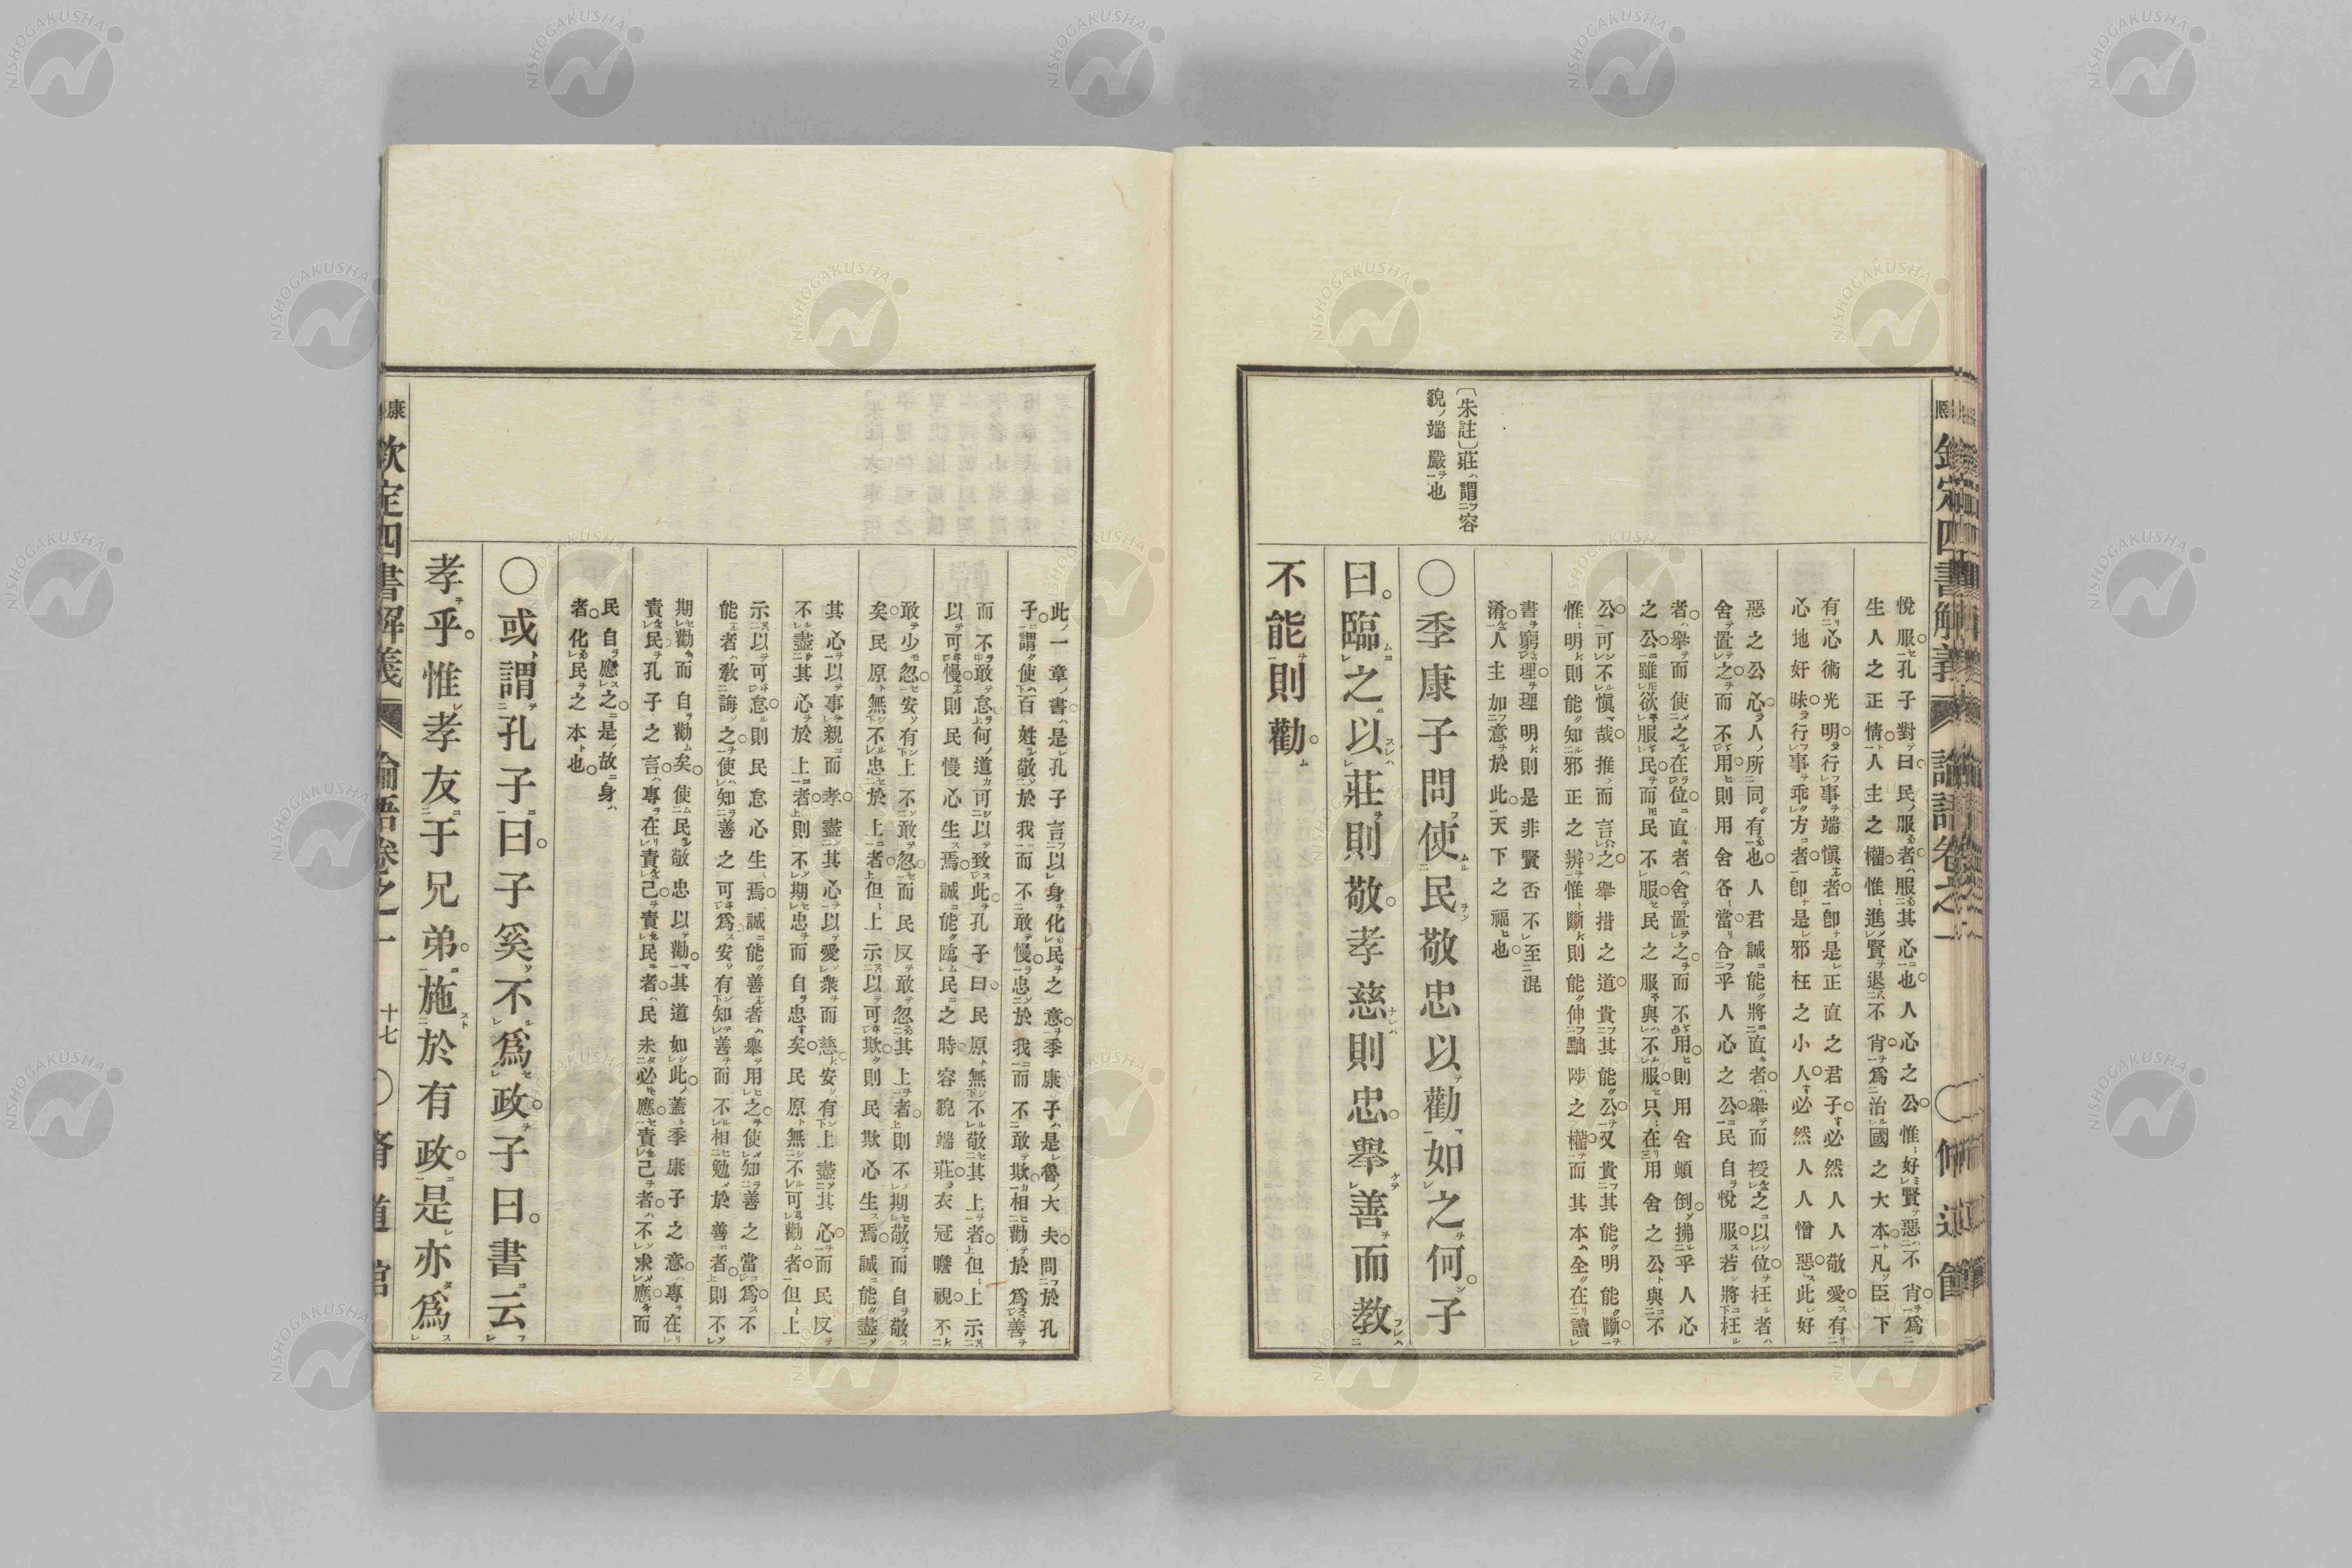 悅服孔子對曰民服者服其心也人心之公惟好賢惡不肖爲
生人之正情人主之權惟進賢退不肖爲治國之大本凡臣下
有心術光明行事端愼者卽是正直之君子必然人人敬愛有
心地奸昧行事乖方者卽是邪枉之小人必然人人憎惡此好
惡之公心人所同有也人君誠能將直者舉而授之以位枉者
舍置之而不用則用舍各當合乎人心之公民自悅服若將枉
者舉而使之在位直者舍置之而不用則用舍顛倒拂乎人心
之公雖欲服民而民不服民之服與不服只在用舍之公與不
公可不愼哉推而言之舉措之道貴其能公又貴其能明能斷
惟明則能知邪正之辨惟斷則能伸黜陟之權而其本全在讀
書窮理理明則是非賢否不至混
淆人主加意於此天下之福也
〔朱註〕莊謂容
貌端嚴也
〇季康子問使民敬忠以勸如之何子
曰臨之以莊則敬孝慈則忠舉善而教
不能則勸
此一章書是孔子言以身化民之意季康子是魯大夫問於孔
子謂使百姓敬於我而不敢慢忠於我而不敢欺相勸於爲善
而不敢怠何道可以致此孔子曰民原無不敬其上者但上示
以可慢則民慢心生焉誠能臨民之時容貌端莊衣冠瞻視不
敢少忽安有上不敢忽而民反敢忽其上者則不期敬而自敬
矣民原無不忠於上者但上示以可欺則民欺心生焉誠能盡
其心以事親而孝盡其心以愛衆而慈安有上盡其心而民反
不盡其心於上者則不期忠而自忠矣民原無不可勸者但上
示以可怠則民怠心生焉誠能善者舉用之使知善之當爲不
能者敎誨之使知善之可爲安有知善而不相勉於善者則不
期勸而自勸矣使民敬忠以勸其道如此蓋季康子之意專在
責民孔子之言專在責己責民者民未必應責己者不求應而
民自應之是故身
者化民之本也
〇或謂孔子曰子奚不爲政子曰書云
孝乎惟孝友于兄弟施於有政是亦爲
康
欽定四書解義 論語卷之一 十七 〇脩道館